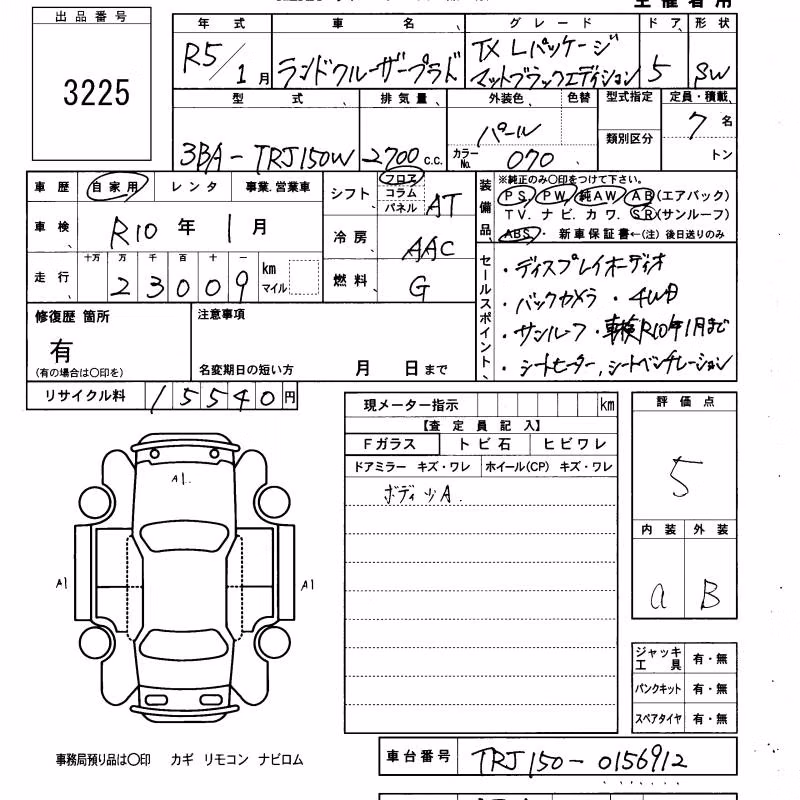 出品番号
3225
年式 車名 グレード ドア 形状
R5/1月 ランドクルーザープラド TX Lパッケージ マットブラックエディション 5 SW
型式 排気量 外装色 色替 型式指定 定員・積載
3BA-TRJ150W 2700 c.c. パール カラーNo. 070 類別区分 7名 トン
車歴 自家用 レンタ 事業.営業車
車検 R10年 1月
走行 十万 万 千 百 十 一 km マイル
23009
シフト フロア コラム パネル AT
冷房 AAC
燃料 G
装備品 ※純正のみ〇印をつけて下さい。
PS PW 純AW AB(エアバック)
TV. ナビ. カワ. SR(サンルーフ)
ABS・ 新車保証書←(注) 後日送りのみ
セールスポイント
・ディスプレイオーディオ
・バックカメラ ・4WD
・サンルーフ ・車検R10年1月まで
・シートヒーター, シートベンチレーション
修復歴 箇所
有
(有の場合は〇印を)
注意事項
名変期日の短い方 月 日まで
リサイクル料 15540円
現メーター指示 km
【査定員記入】
Fガラス トビ石 ヒビワレ
ドアミラー キズ・ワレ ホイール(CP) キズ・ワレ
ボディ少A.
評価点
5
内装 外装
a B
A1.
A1
A1
ジャッキ工具 有・無
パンクキット 有・無
スペアタイヤ 有・無
事務局預り品は〇印 カギ リモコン ナビロム
車台番号 TRJ150-0156912